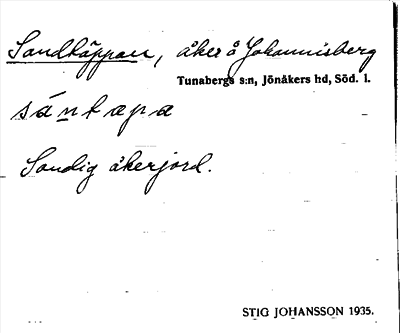 Sandtäppan, åker å Johannisberg
Tunabergs s:n, Jönåkers hd, Söd. l.
sántæpa
Sandig åkerjord.
STIG JOHANSSON 1935.